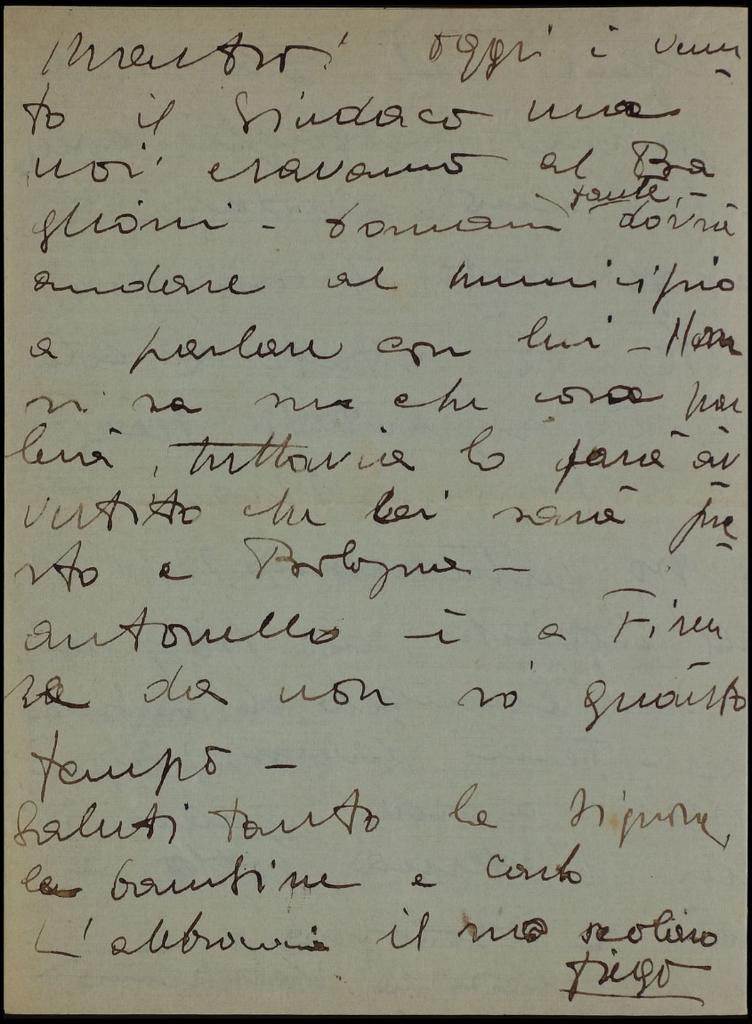 Maestro! oggi è venu
to il Sindaco ma
noi eravamo al Ba
glioni - domani dovrà
andare al municipio
a parlare con lui - Non
si sa mai che cosa par
lerà, tuttavia lo farà av
vertito che lei sarà pre
sto a Bologna -
Antonello è a Firen
ze da non so quanto
tempo -
Saluti tanto la Signora,
le bambine e Carlo
L'abbraccia il suo scolaro
Diego